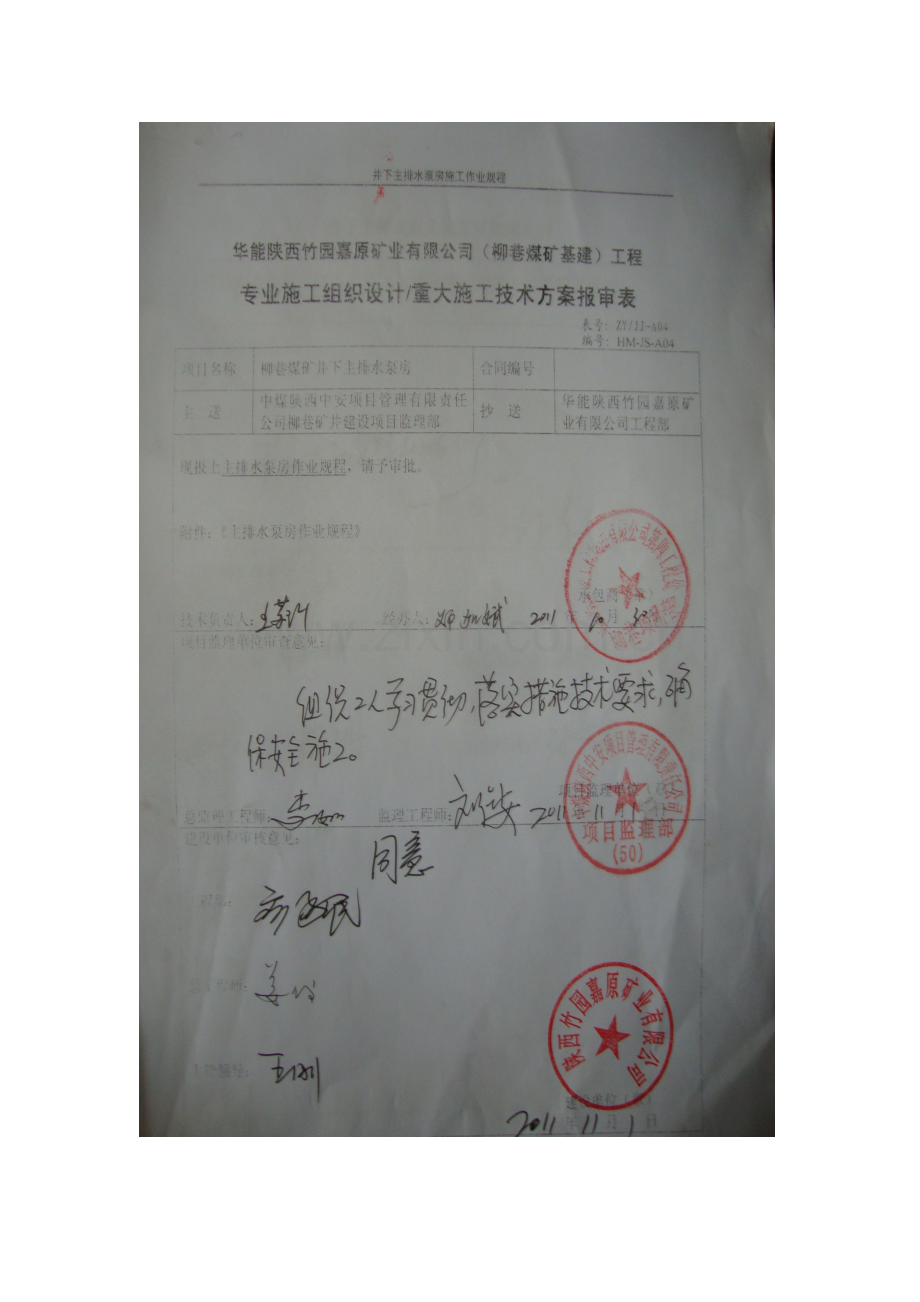 井下主排水泵房施工作业规程
华能陕西竹园嘉原矿业有限公司（柳巷煤矿基建）工程
专业施工组织设计/重大施工技术方案报审表
表号：ZY/JJ-A04
编号：HM-JS-A04
项目名称 柳巷煤矿井下主排水泵房 合同编号
主 送 中煤陕西中安项目管理有限责任 抄 送 华能陕西竹园嘉原矿
公司柳巷矿井建设项目监理部 业有限公司工程部
现报上主排水泵房作业规程，请予审批。
附件：《主排水泵房作业规程》
承包商
技术负责人： 经办人： 2011 年 10 月
项目监理单位审查意见：
组织工人学习贯彻，落实措施技术要求，确
保安全施工。
项目监理单位
总监理工程师： 监理工程师： 2011 年 11 月 1
项目监理部
(50)
建设单位审核意见：
同意
陕西竹园嘉原矿业有限公司
建设单位
2011 年 11 月 1 日